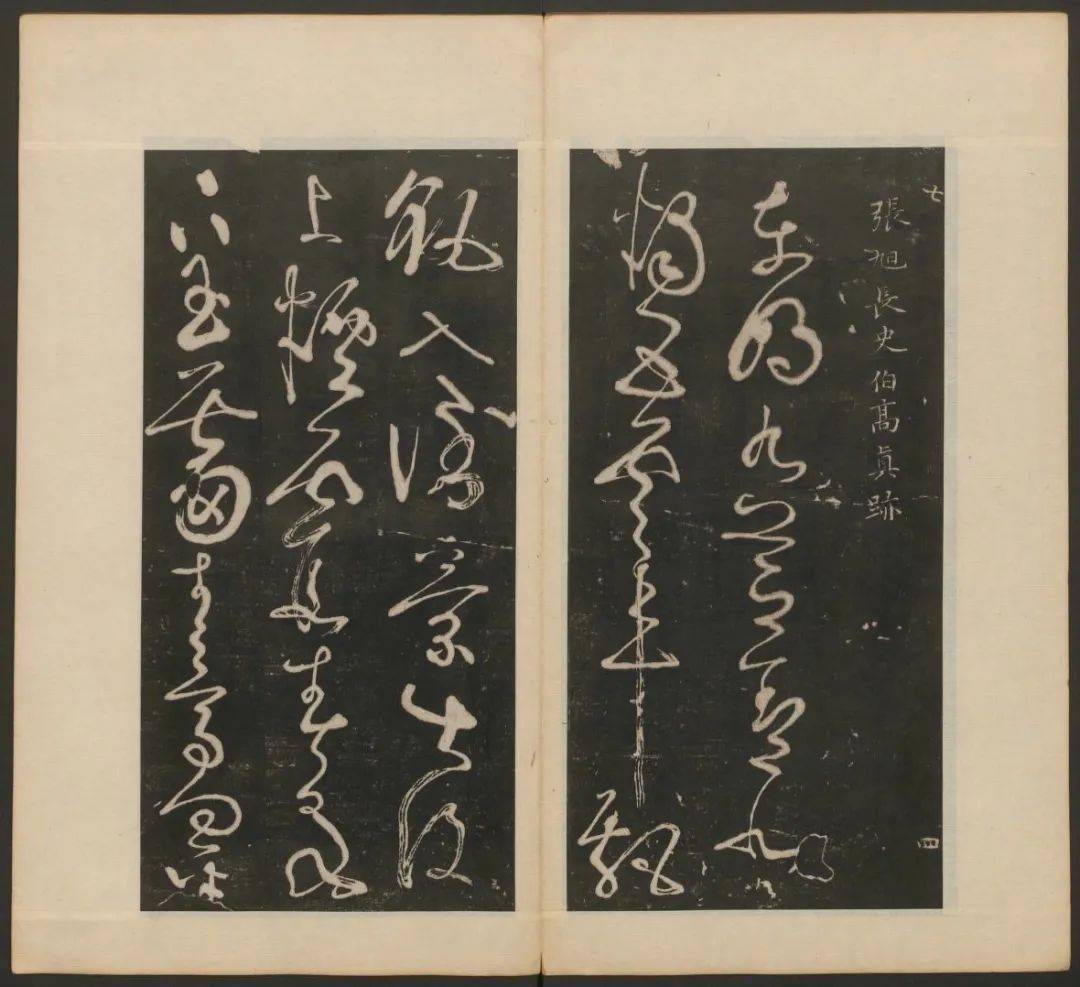 七
張旭長史伯髙眞跡
四
東明九芝蓋北
燭五雲車飄
飖入倒景出沒
上煙霞春泉
下玉霤青鳥向金